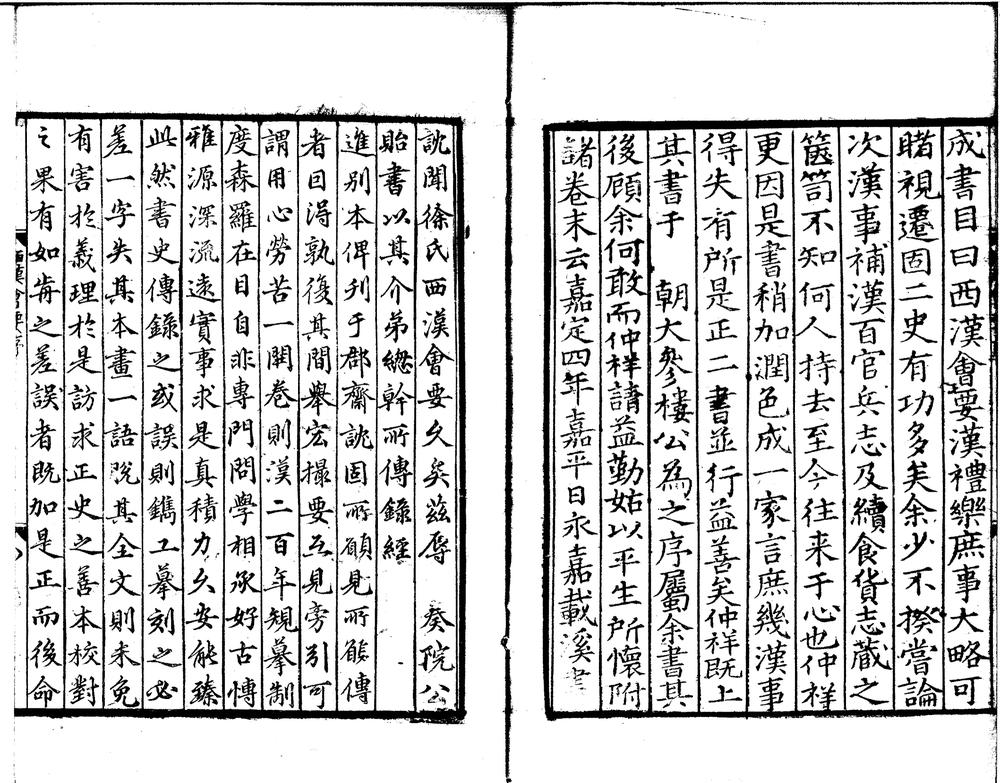 成書目曰西漢會要漢禮樂庶事大略可
睹視遷固二史有功多矣余少不揆嘗論
次漢事補漢百官兵志及續食貨志蔵之
篋笥不知何人持去至今往来于心也仲祥
更因是書稍加潤色成一家言庶幾漢事
得失有所是正二書並行益善矣仲祥既上
其書于 朝大參樓公為之序屬余書其
後顧余何敢而仲祥請益勤姑以平生所懷附
諸卷末云嘉定四年嘉平日永嘉戴溪書
訦聞徐氏西漢會要久矣茲辱 癸院公
貽書以其介弟總幹所傳錄經
進別本俾刊于郡齋訦固所願見所願傳
者因得孰復其間舉宏撮要互見旁引可
謂用心勞苦一開卷則漢二百年規摹制
度森羅在目自非專門問學相承好古博
雅源深流遠實事求是真積力久安能臻
此然書史傳錄之或誤則鐫工摹刻之必
差一字失其本畫一語脫其全文則未免
有害於義理於是訪求正史之善本校對
之果有如肯之差誤者既加是正而後命
西漢會要序